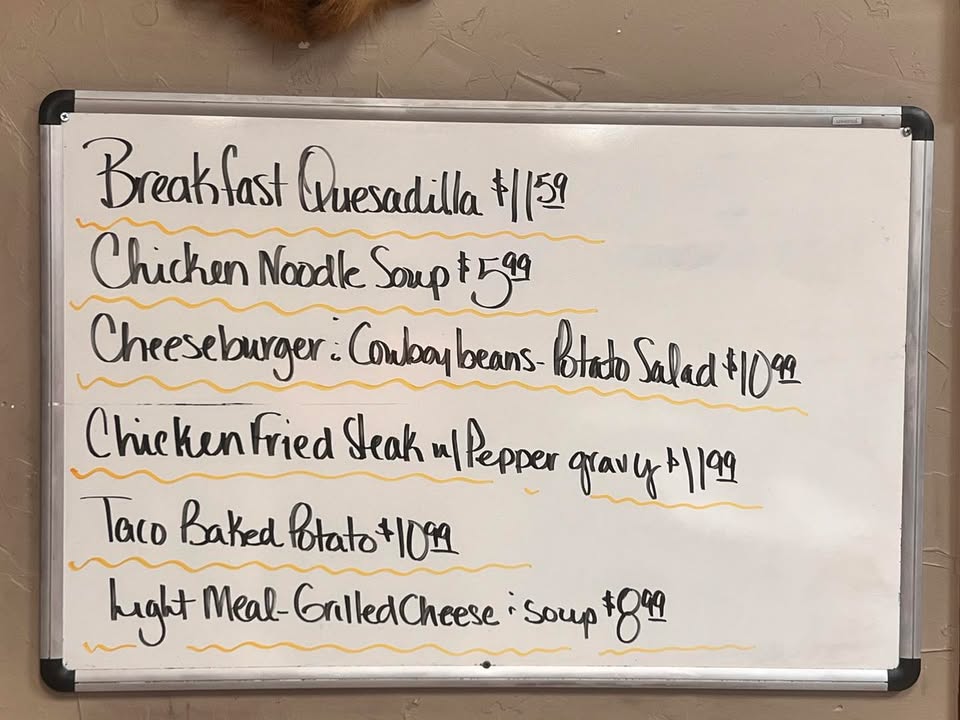 Breakfast Quesadilla $11.59
Chicken Noodle Soup $5.99
Cheeseburger : Cowboy beans - Potato Salad $10.99
Chicken Fried Steak w/ Pepper gravy $11.99
Taco Baked Potato $10.99
Light Meal - Grilled Cheese : soup $8.99